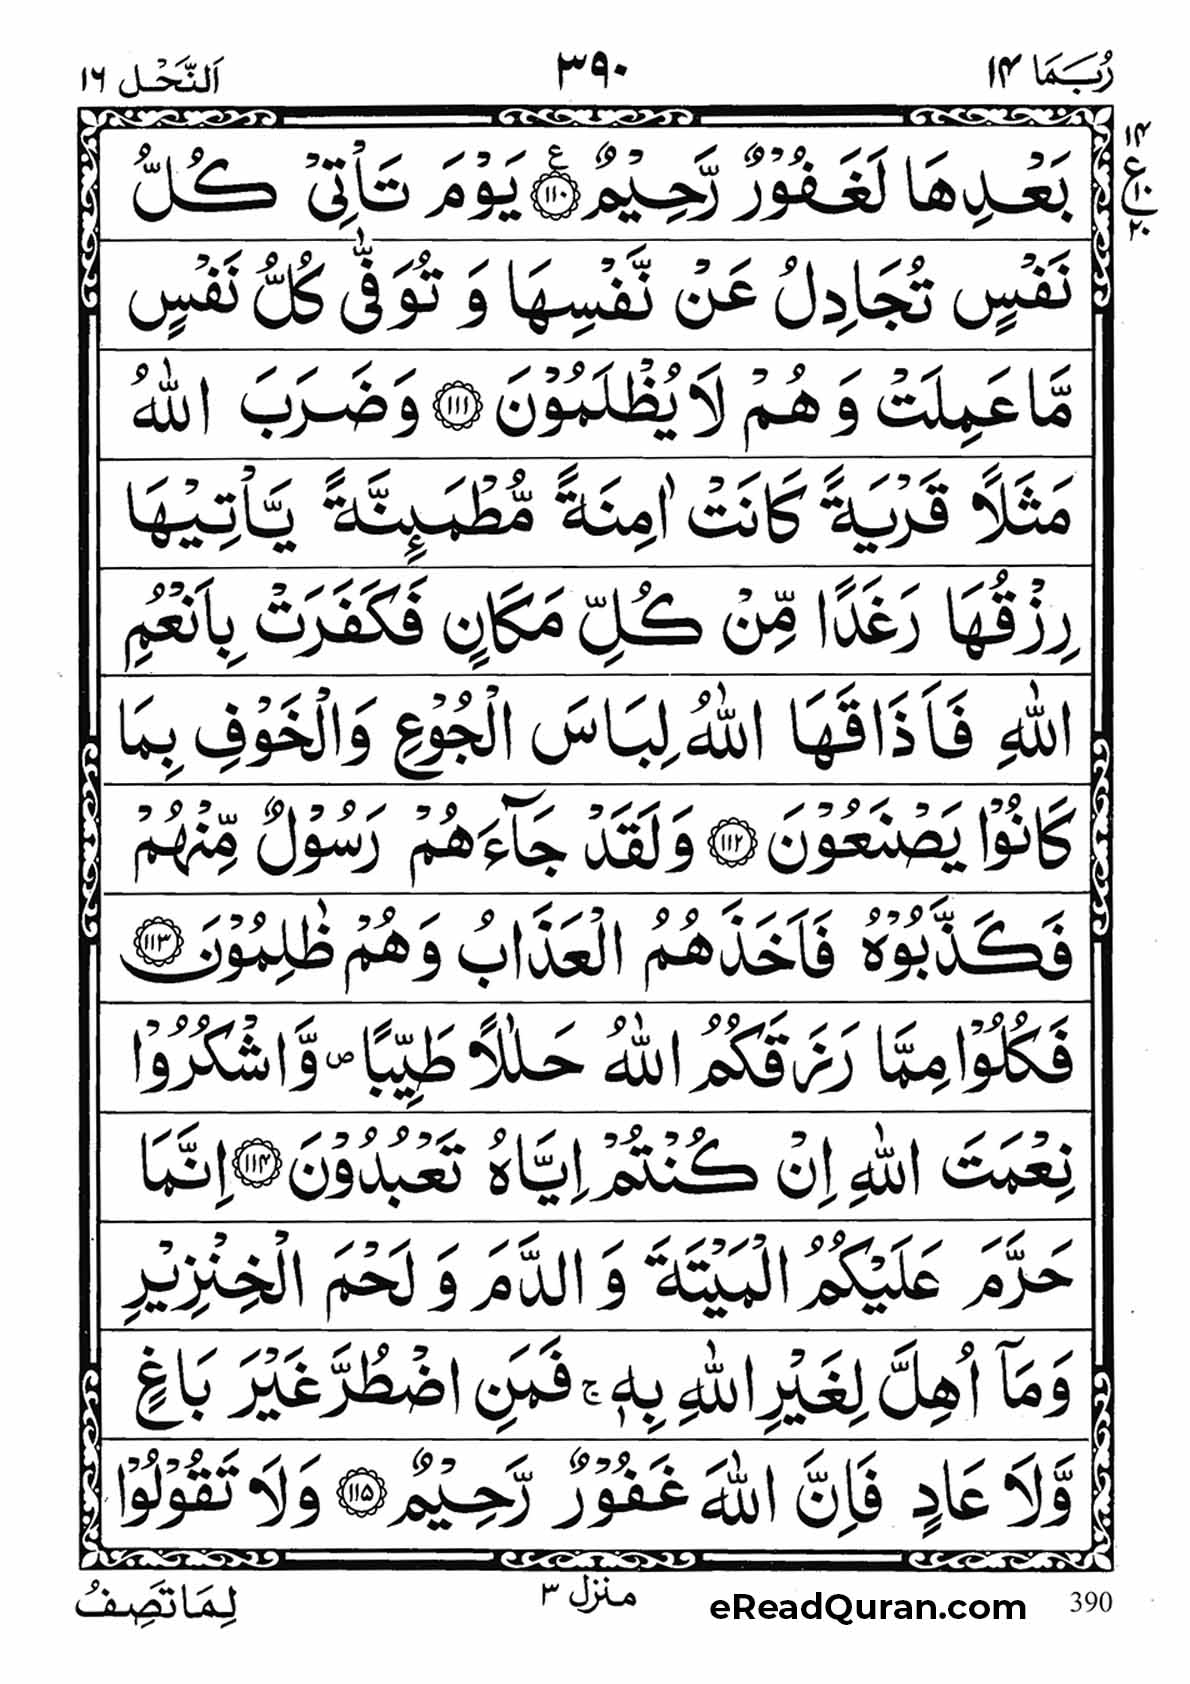 رُبَمَا ١٤
٣٩٠
اَلنَّحْل ١٦
١٤
ع
١٠
٢٠
بَعْدِهَا لَغَفُوْرٌ رَّحِيْمٌ ﴿١١٠﴾ ع يَوْمَ تَاْتِیْ كُلُّ
نَفْسٍ تُجَادِلُ عَنْ نَّفْسِهَا وَ تُوَفّٰى كُلُّ نَفْسٍ
مَّا عَمِلَتْ وَ هُمْ لَا يُظْلَمُوْنَ ﴿١١١﴾ وَضَرَبَ اللّٰهُ
مَثَلًا قَرْيَةً كَانَتْ اٰمِنَةً مُّطْمَىِٕنَّةً يَّاْتِيْهَا
رِزْقُهَا رَغَدًا مِّنْ كُلِّ مَكَانٍ فَكَفَرَتْ بِاَنْعُمِ
اللّٰهِ فَاَذَاقَهَا اللّٰهُ لِبَاسَ الْجُوْعِ وَالْخَوْفِ بِمَا
كَانُوْا يَصْنَعُوْنَ ﴿١١٢﴾ وَلَقَدْ جَآءَهُمْ رَسُوْلٌ مِّنْهُمْ
فَكَذَّبُوْهُ فَاَخَذَهُمُ الْعَذَابُ وَهُمْ ظٰلِمُوْنَ ﴿١١٣﴾
فَكُلُوْا مِمَّا رَزَقَكُمُ اللّٰهُ حَلٰلًا طَيِّبًا ص وَّاشْكُرُوْا
نِعْمَتَ اللّٰهِ اِنْ كُنْتُمْ اِيَّاهُ تَعْبُدُوْنَ ﴿١١٤﴾ اِنَّمَا
حَرَّمَ عَلَيْكُمُ الْمَيْتَةَ وَ الدَّمَ وَ لَحْمَ الْخِنْزِيْرِ
وَمَآ اُهِلَّ لِغَيْرِ اللّٰهِ بِهٖ ج فَمَنِ اضْطُرَّ غَيْرَ بَاغٍ
وَّلَا عَادٍ فَاِنَّ اللّٰهَ غَفُوْرٌ رَّحِيْمٌ ﴿١١٥﴾ وَلَا تَقُوْلُوْا
لِمَا تَصِفُ
منزل ٣
eReadQuran.com
390